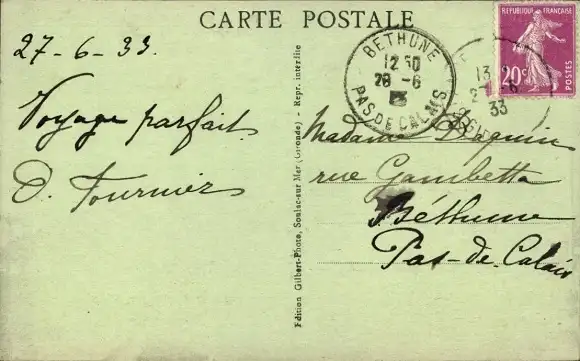 CARTE POSTALE
27-6-33.
Voyage parfait.
D. Fournier
Edition Gilbert-Photo, Soulac-sur Mer (Gironde) - Repr. interdite
BETHUNE
12 50
28 -6
33
PAS DE CALAIS
13
33
REPUBLIQUE FRANÇAISE
20c
POSTES
Madame Daquin
rue Gambetta
Béthune
Pas-de-Calais